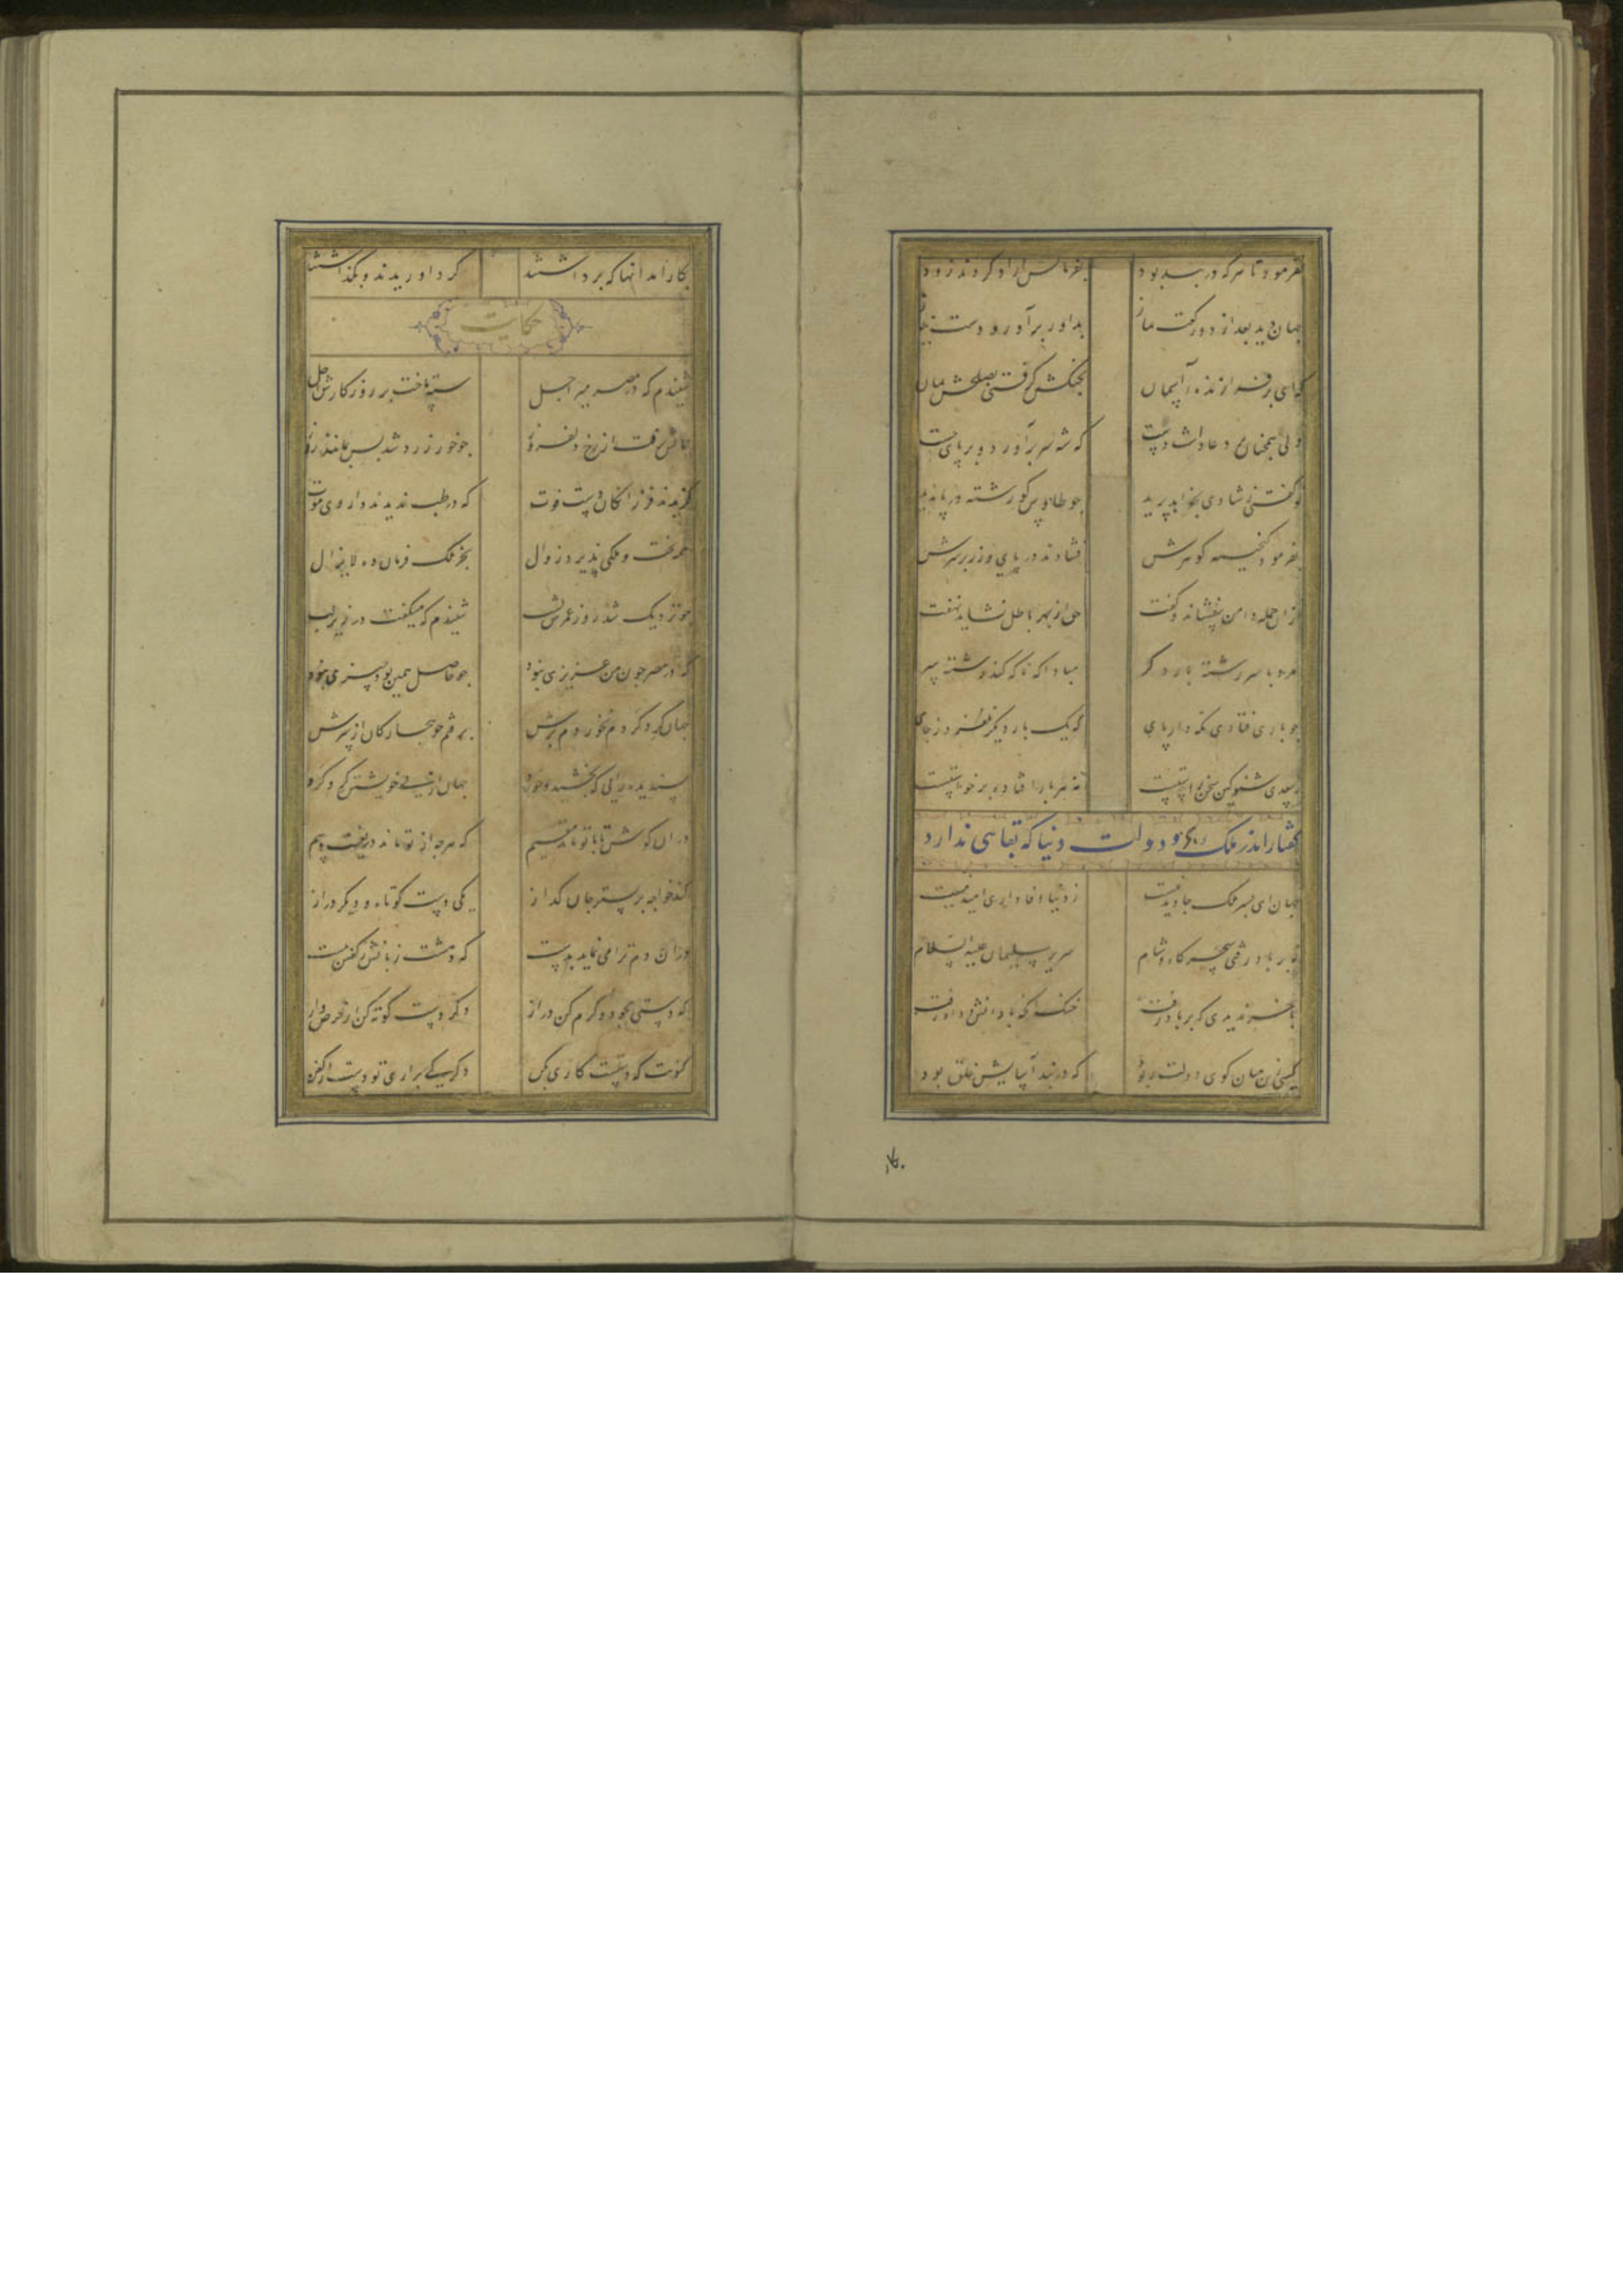 بفرمود تا هر که در بند بود بفرمانش آزاد کردند زود
جهان دیده بعد از دو رکعت نماز بداور برآورد دست نیاز
که ای برفرازنده آسمان بجنگش گرفتی بصلحش بمان
ولی همچنان بر دعا داشت دست که شه سر برآورد و بر پای جست
تو گفتی ز شادی بخواهد پرید چو طاوس کو رشته در پا ندید
بفرمود گنجینه گوهرش فشاندند در پای و زر بر سرش
از ان جمله دامن بیفشاند و گفت حق از بهر باطل نشاید نهفت
مرو با سر رشته بار دگر مبادا که ناگه کند رشته سر
چو باری فتادی نگه دار پای که یک بار دیگر نلغزد ز جای
ز سعدی شنو کین سخن راستست نه هر باری افتاده برخاستست
گفتار اندر ملک و دولت دنیا که بقایی ندارد
جهان ای پسر ملک جاوید نیست ز دنیا وفاداری امید نیست
نه بر باد رفتی سحرگاه و شام سریر سلیمان علیه السلام
باخر ندیدی که بر باد رفت خنک آنکه با دانش و داد رفت
کسی زین میان گوی دولت ربود که در بند آسایش خلق بود
بکار آمد آنها که برداشتند گرد آوریدند و بگذاشتند
حکایت
شنیدم که در مصر میری اجل سپه تاخت بر روزگارش اجل
جمالش برفت از رخ دلفروز چو خور زرد شد بس نماند ز روز
گزیدند فرزانگان دست فوت که در طب ندیدند داروی موت
همه تخت و ملکی پذیرد زوال بجز ملک فرمان ده لایزال
چو نزدیک شد روز عمرش بشب شنیدم که میگفت در زیر لب
که در مصر چون من عزیزی نبود چو حاصل همین بود چیزی نبود
جهان گرد کردم نخوردم برش برفتم چو بیچارگان از سرش
پسندیده رایی که بخشید و خورد جهان از پی خویشتن گرد کرد
در ان کوش تا با تو ماند مقیم که هرچه از تو ماند دریغست و بیم
کند خواجه بر بستر جان گداز یکی دست کوتاه و دیگر دراز
در ان دم ترا می نماید بدست که دهشت زبانش ز گفتن ببست
که دستی بجود و کرم کن دراز دگر دست کوته کن از
کنونت که دستست کاری بکن دگر کی براری تو دست از کفن